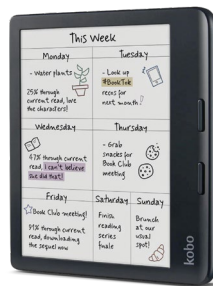 This Week
Monday
- Water plants
25% through
current read, love
the characters!
Tuesday
- Look up
#BookTok
recns for
next month!
Wednesday
47% through current
read, I can't believe
she did that!
Thursday
- Grab
snacks for
Book Club
meeting
Friday
Book Club meeting!
91% through current
read, downloading
the sequel now
Saturday
Finish
reading
series
finale
Sunday
Brunch
at our
usual
spot!
kobo